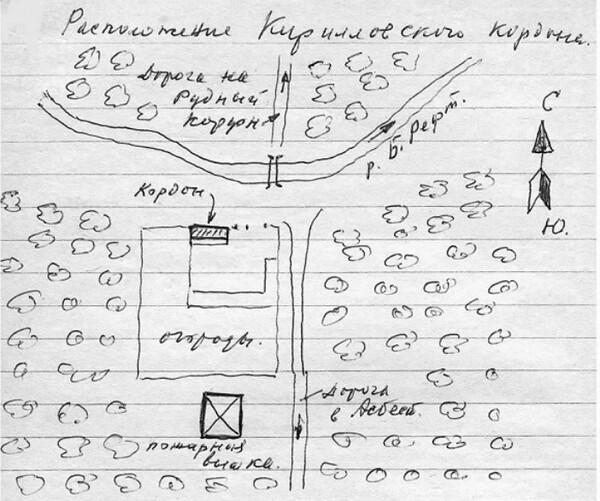 Расположение Кирилловского Кордона.
Дорога на
Рудный
Кордон
р. Б. Рефт.
С
Ю.
Кордон
огороды.
Дорога
в Асбест.
пожарная
вышка.